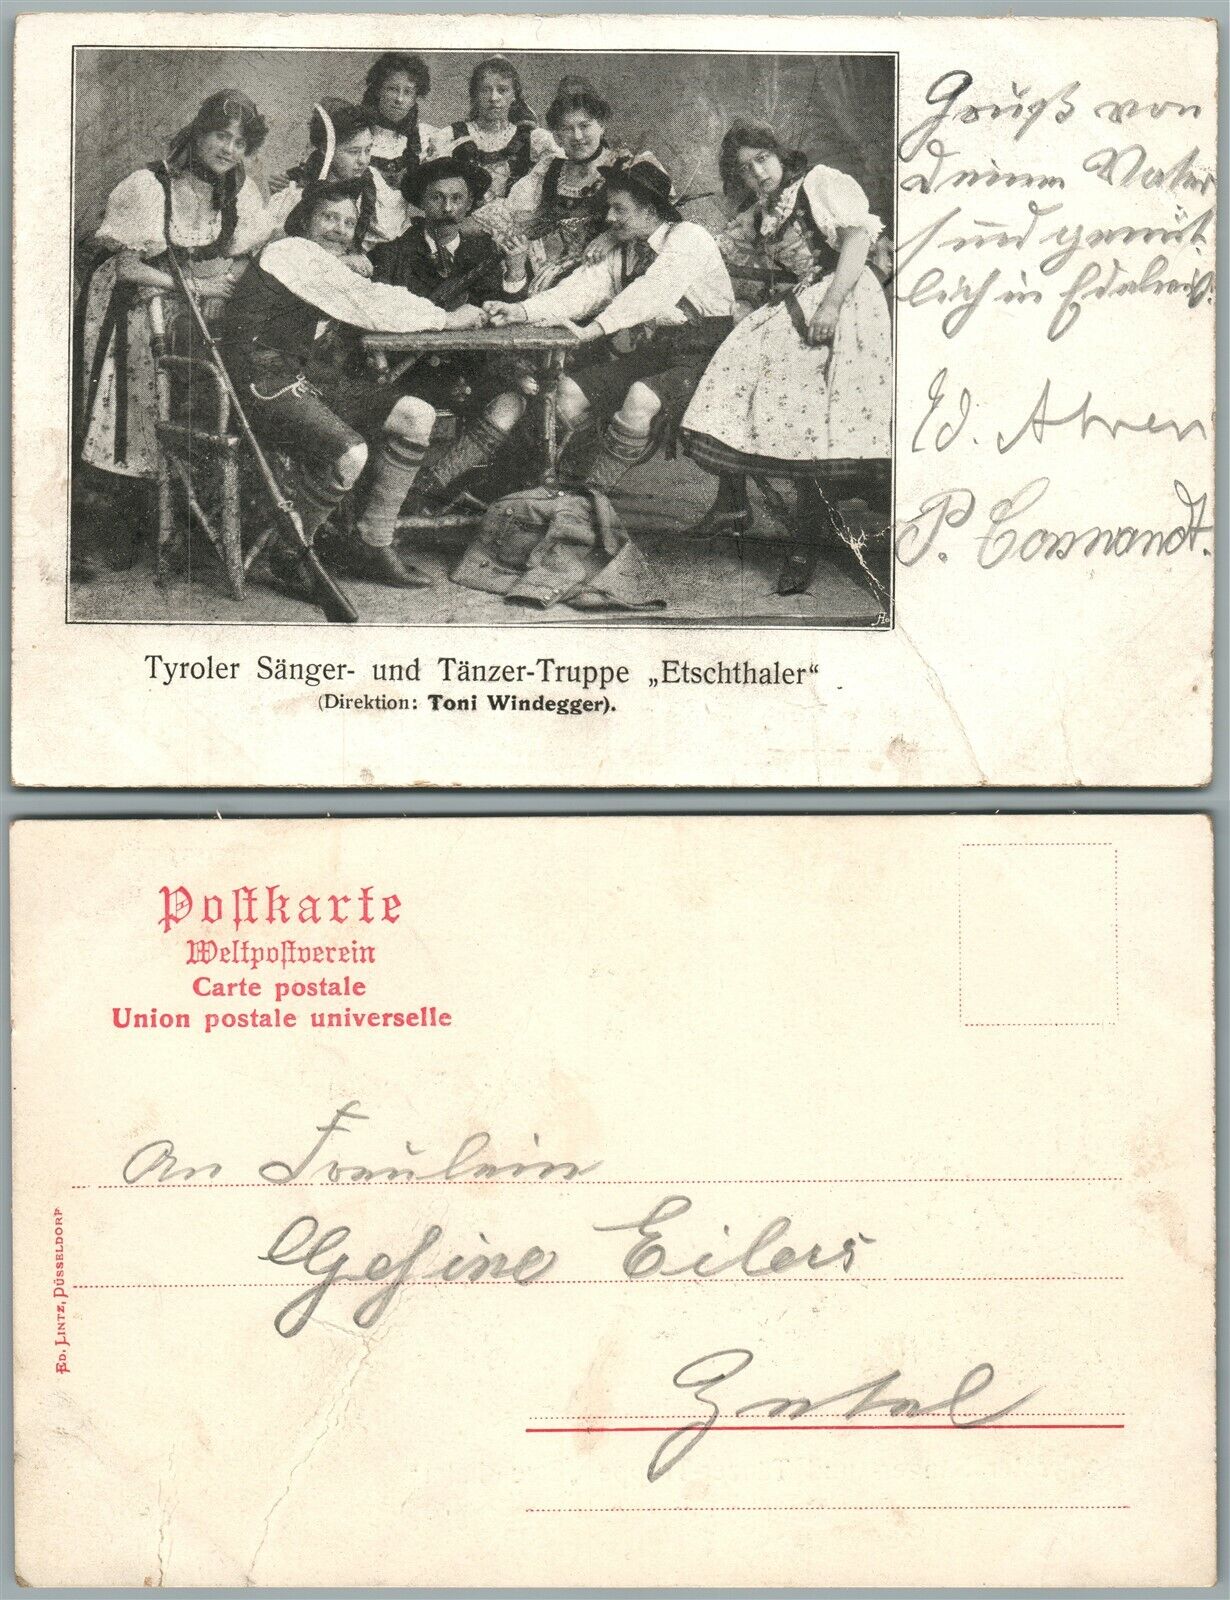 Gruß von
deinem Vater
sind gemüt-
lich in
Ed. Ahren
P.
Tyroler Sänger- und Tänzer-Truppe „Etschthaler“
(Direktion: Toni Windegger).
Postkarte
Weltpostverein
Carte postale
Union postale universelle
An Fräulein
Gesine Eilers
Zetel
ED. LINTZ, DÜSSELDORF